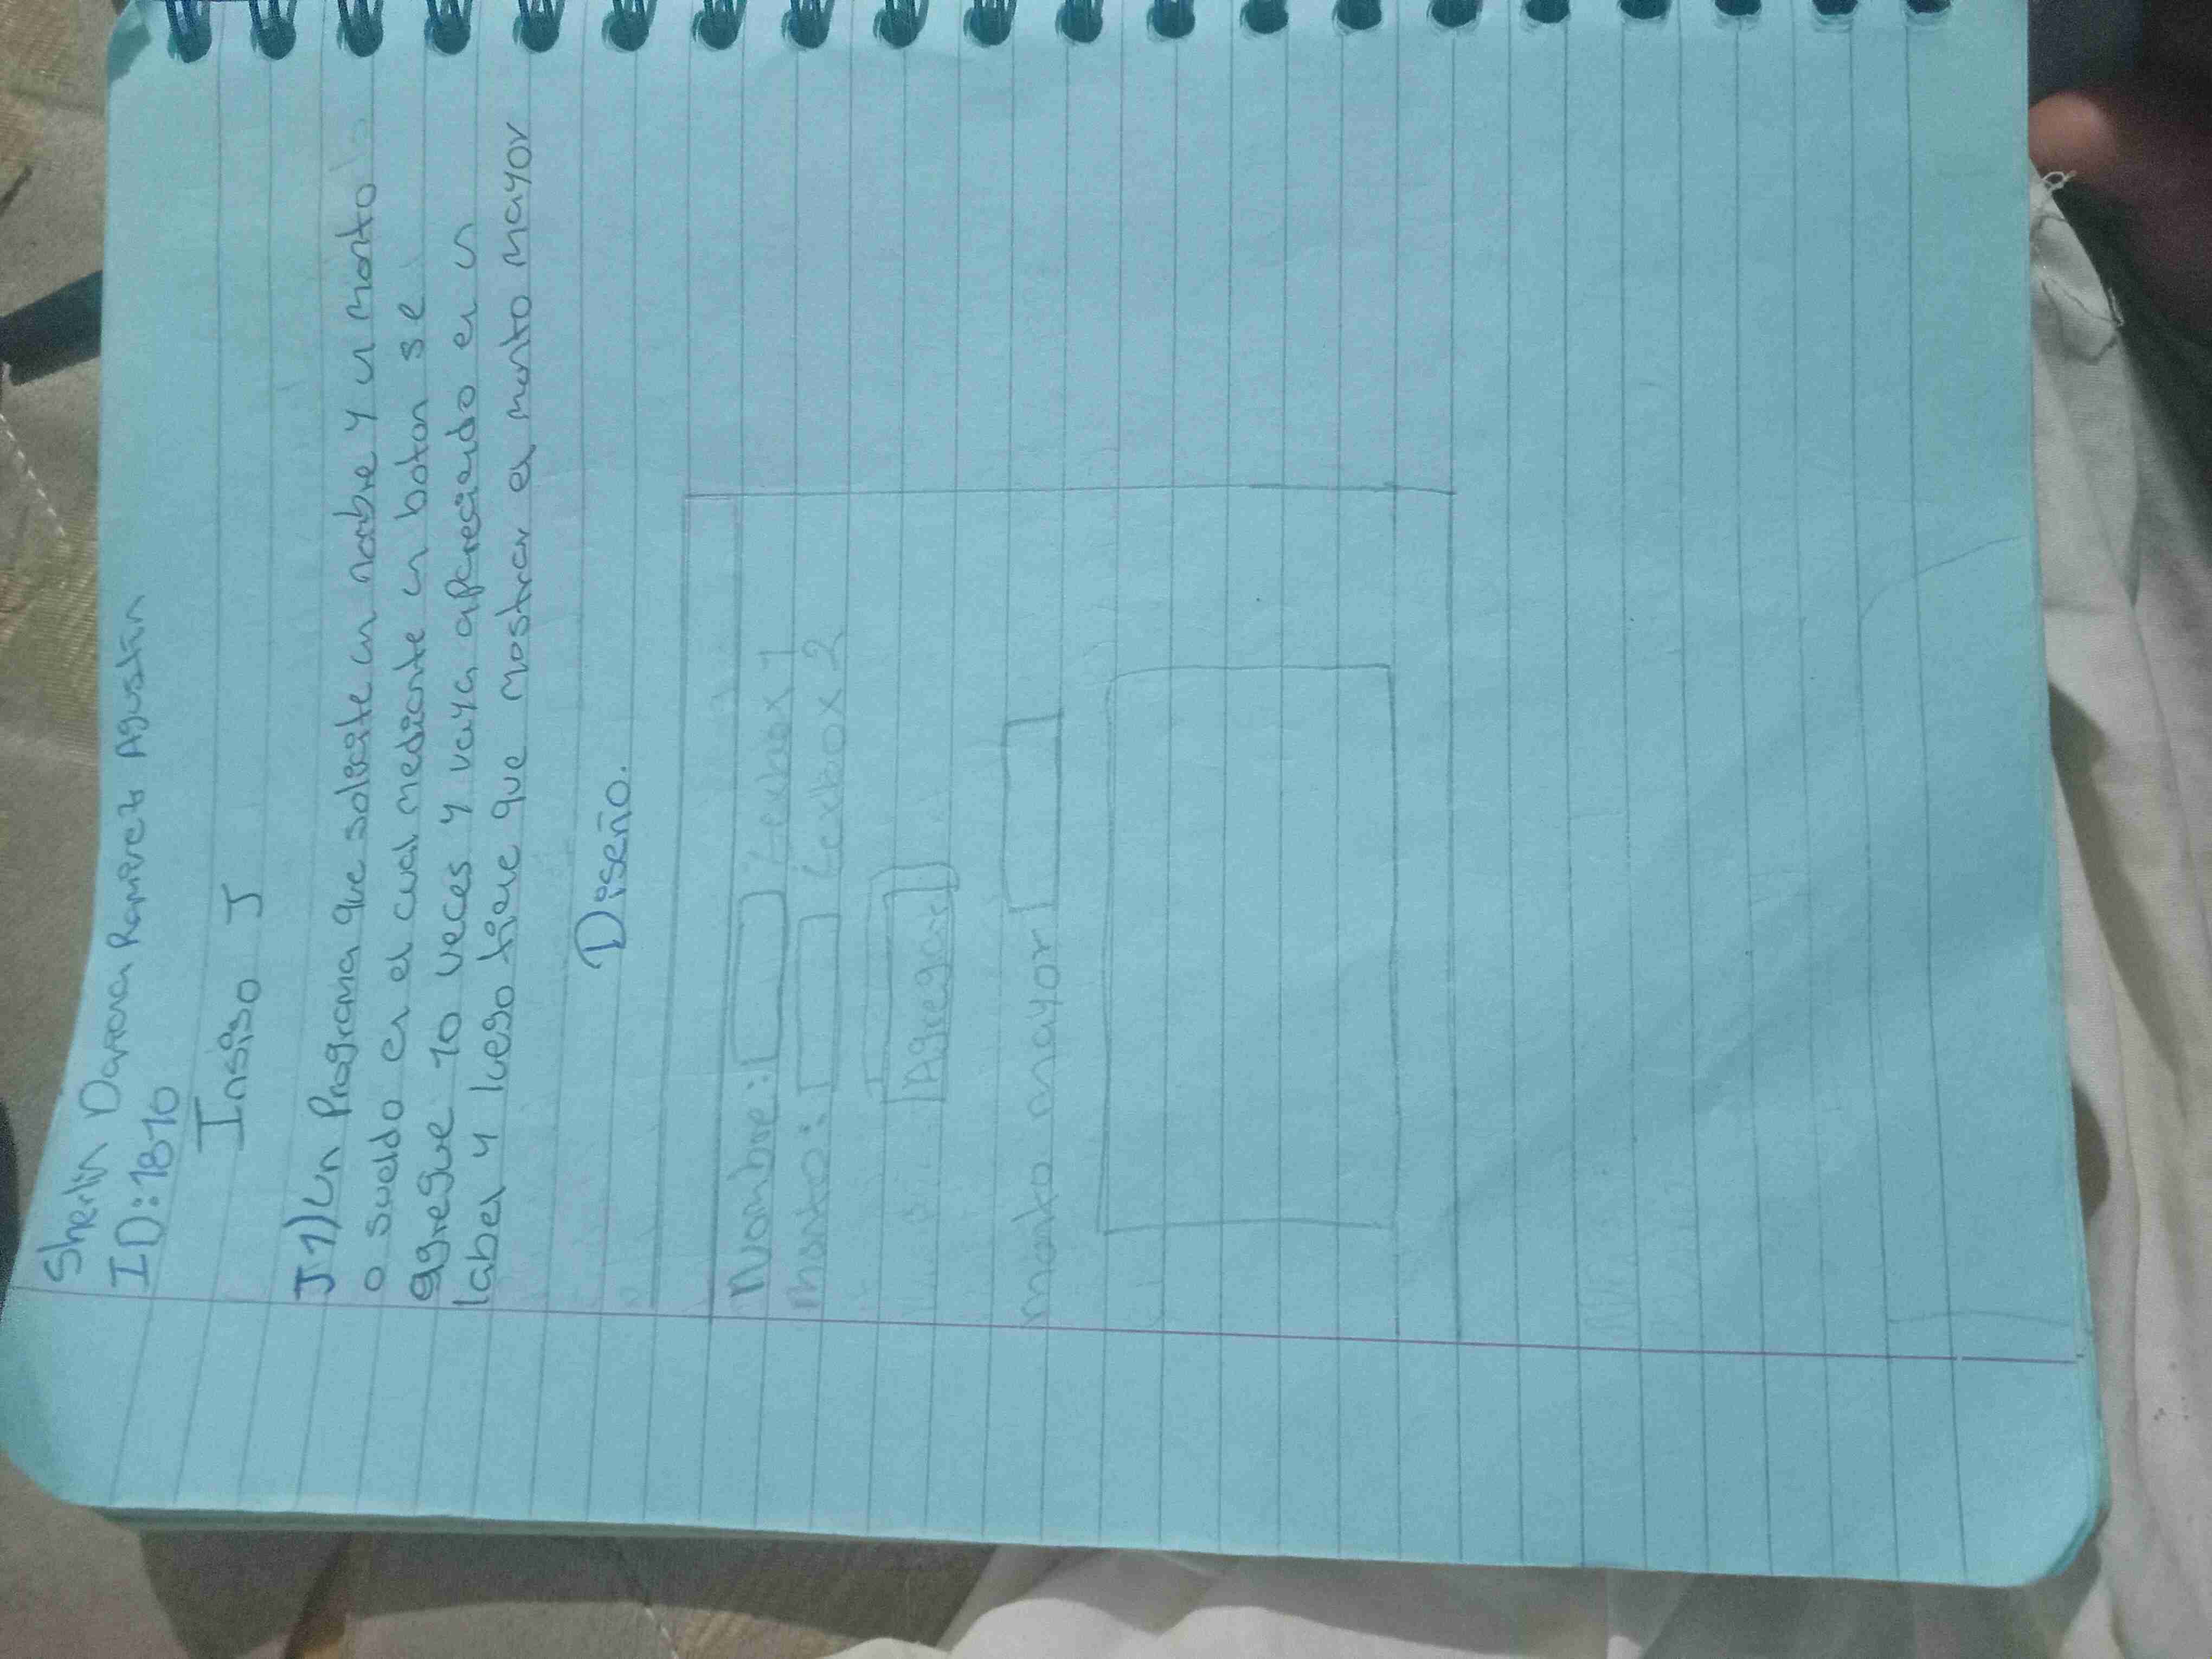 Sherlin Dayana Ramirez Agustin
ID:1810
Insiso J
J1) Un Programa que solicite un nombre y un monto
o sueldo en el cual mediante un boton se
agregue 10 veces y vaya apareciendo en un
label y luego tiene que mostrar el monto mayor
Diseño.
Nombre: textbox 1
monto: textbox 2
Agregar
monto mayor